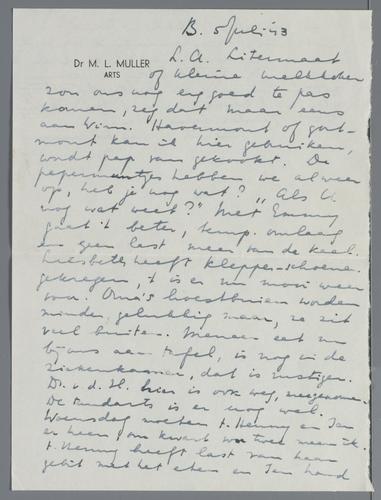 B. 5 Juli '43
Dr M. L. MULLER
ARTS
L. A. Litermaat
of kleine melkkoker
zou ons nog erg goed te pas
komen, zeg dat maar eens
aan Wim. Havermout of gort-
mout kan ik hier gebruiken,
wordt pap van gekookt. De
pepermuntjes hebben we al weer
op, heb je nog wat? "Als U
nog wat weet?" Met Emmy
gaat 't beter, temp. omlaag
en geen last meer van de keel.
Liesbeth heeft klepperschoenen
gekregen, 't is er nu mooi weer
voor. Oma's hoestbuien worden
minder, gelukkig maar, ze zit
veel buiten. Meneer eet nu
bij ons aan tafel, is nog in de
ziekenkamer, dat is rustiger.
Dr. v. d. H. hier is ook weg, meegenomen.
De tandarts is er nog wel.
Woensdag moeten t. Henny en Jan
er heen, om kwart voor twee meen ik.
t. Henny heeft last van haar
gebit met het eten en Jan had